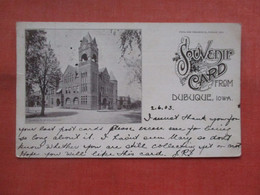 Souvenir
Card
FROM
DUBUQUE, IOWA.
2.6.03.
I must thank you for
your last post cards please excuse me for being
so long about it. I haint seen Mary so dont
know whether you are still collecting yet or not
Hope you will like this card.